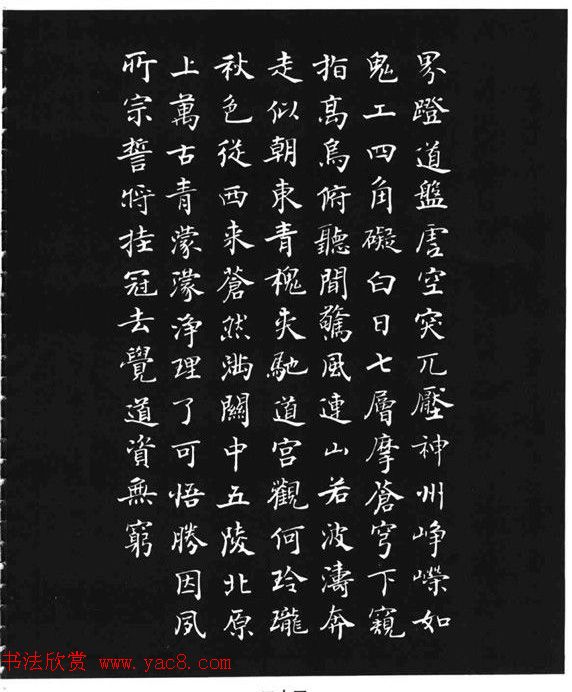 界蹬道盤虛空突兀壓神州崢嶸如
鬼工四角礙白日七層摩蒼穹下窺
指高鳥俯聽聞驚風連山若波濤奔
走似朝東青槐夾馳道宮觀何玲瓏
秋色從西來蒼然滿關中五陵北原
上萬古青濛濛淨理了可悟勝因夙
所宗誓將挂冠去覺道資無窮
书法欣赏 www.yac8.com